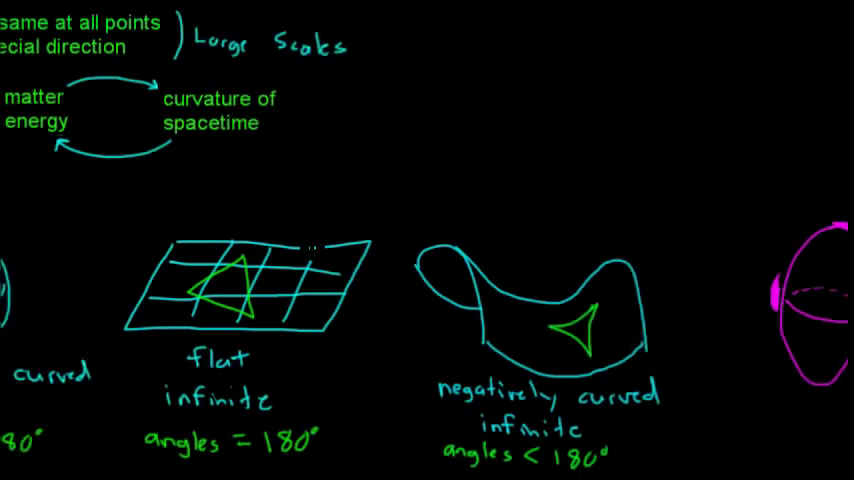 same at all points
ecial direction
Large Scales
matter
energy
curvature of
spacetime
curved
80°
flat
infinite
angles = 180°
negatively curved
infinite
angles < 180°